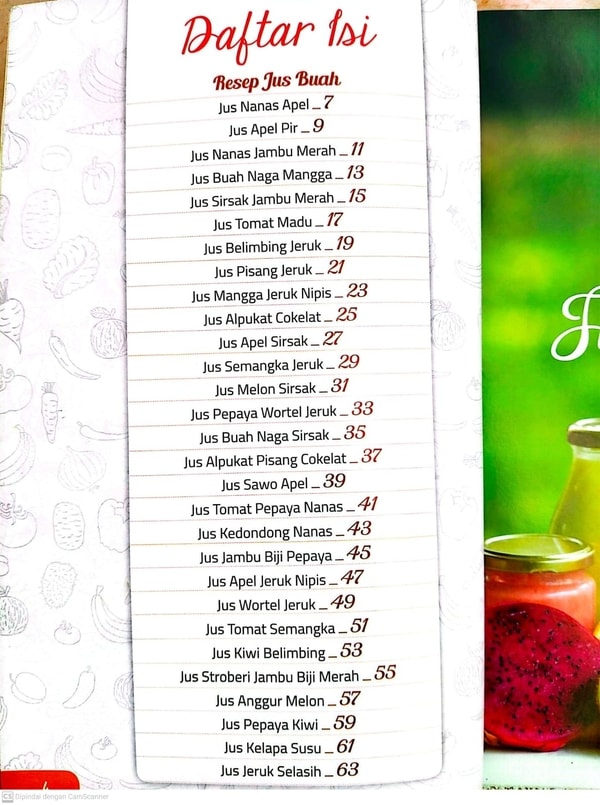 Daftar Isi
Resep Jus Buah
Jus Nanas Apel _ 7
Jus Apel Pir _ 9
Jus Nanas Jambu Merah _ 11
Jus Buah Naga Mangga _ 13
Jus Sirsak Jambu Merah _ 15
Jus Tomat Madu _ 17
Jus Belimbing Jeruk _ 19
Jus Pisang Jeruk _ 21
Jus Mangga Jeruk Nipis _ 23
Jus Alpukat Cokelat _ 25
Jus Apel Sirsak _ 27
Jus Semangka Jeruk _ 29
Jus Melon Sirsak _ 31
Jus Pepaya Wortel Jeruk _ 33
Jus Buah Naga Sirsak _ 35
Jus Alpukat Pisang Cokelat _ 37
Jus Sawo Apel _ 39
Jus Tomat Pepaya Nanas _ 41
Jus Kedondong Nanas _ 43
Jus Jambu Biji Pepaya _ 45
Jus Apel Jeruk Nipis _ 47
Jus Wortel Jeruk _ 49
Jus Tomat Semangka _ 51
Jus Kiwi Belimbing _ 53
Jus Stroberi Jambu Biji Merah _ 55
Jus Anggur Melon _ 57
Jus Pepaya Kiwi _ 59
Jus Kelapa Susu _ 61
Jus Jeruk Selasih _ 63
CS Dipindai dengan CamScanner